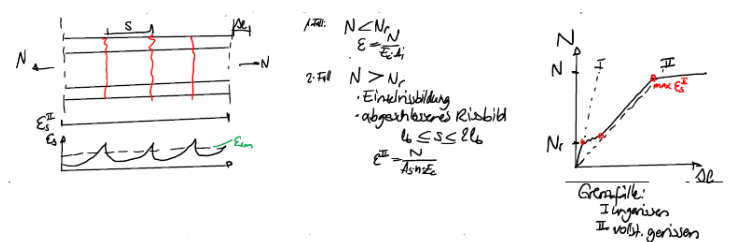 S
Δl
N
N
ε_s^II
ε_s
ε_sm
1. Fall: N < N_r
ε = N / E_c·A_i
2. Fall N > N_r
· Einzelrissbildung
· abgeschlossenes Rissbild
l_b ≤ s ≤ 2l_b
ε^II = N / A_s
N
I
II
N
max ε_s^I
N_r
Δl
Grenzfälle:
I ungerissen
II vollst. gerissen